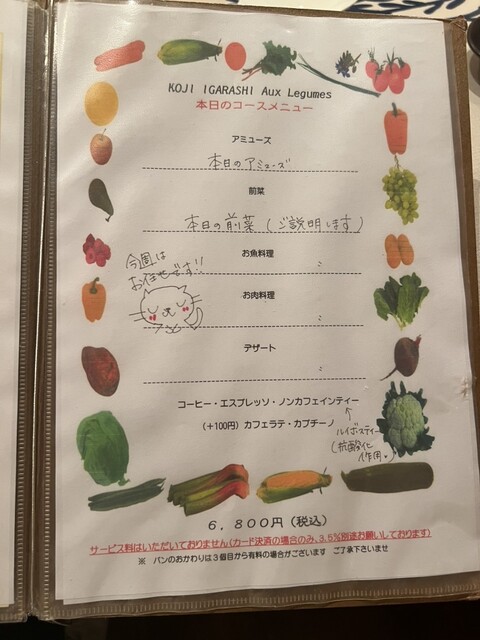 KOJI IGARASHI Aux Legumes
本日のコースメニュー
アミューズ
本日のアミューズ
前菜
本日の前菜（ご説明します）
お魚料理
今週は
お任せです!!
お肉料理
デザート
コーヒー・エスプレッソ・ノンカフェインティー
（+100円）カフェラテ・カプチーノ
ルイボスティー
（抗酸化
作用。）
6,800円（税込）
サービス料はいただいておりません（カード決済の場合のみ、3.5%別途お願いしております）
※ パンのおかわりは3個目から有料の場合がございます ご了承下さいませ